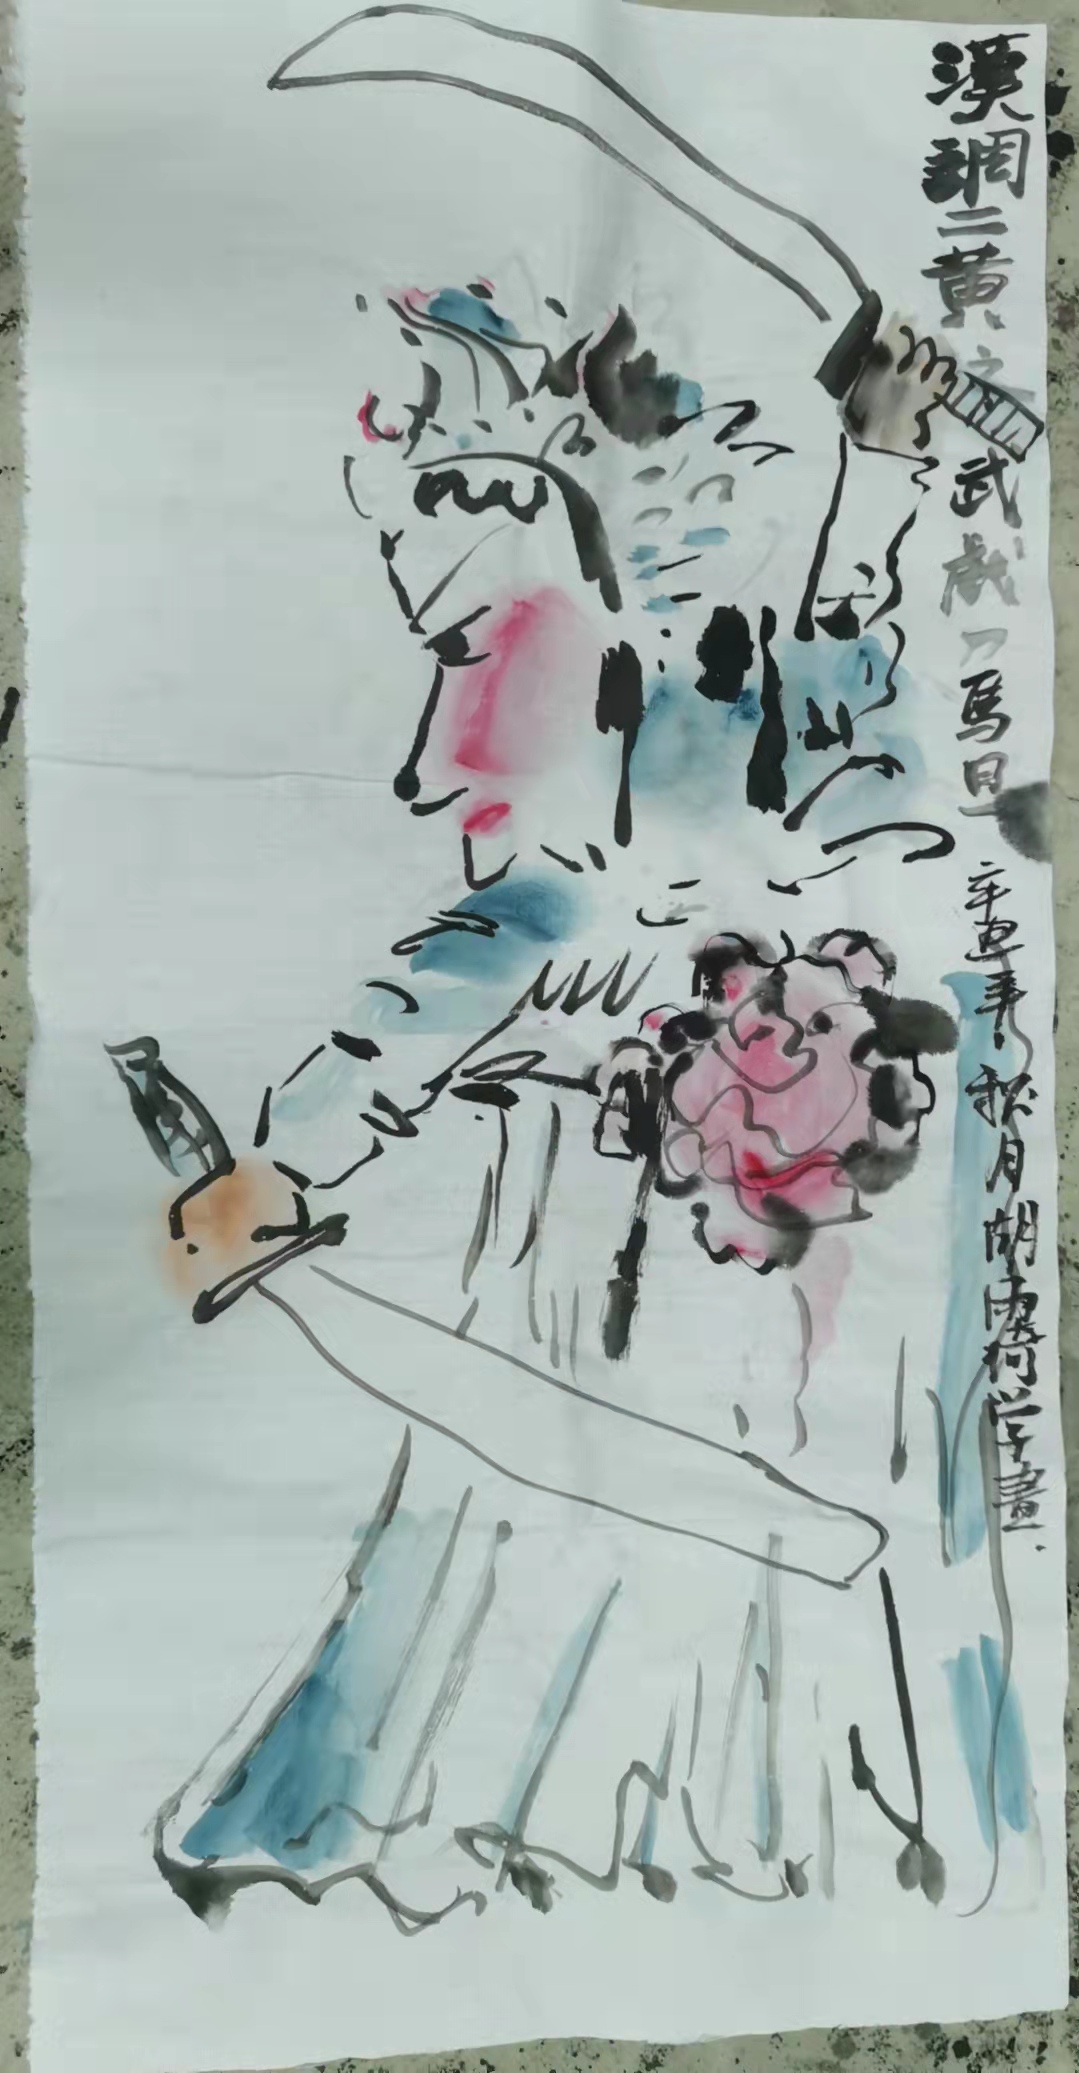 漢調二黃之武戲刀馬旦
辛丑年秋月胡雨荷学畫